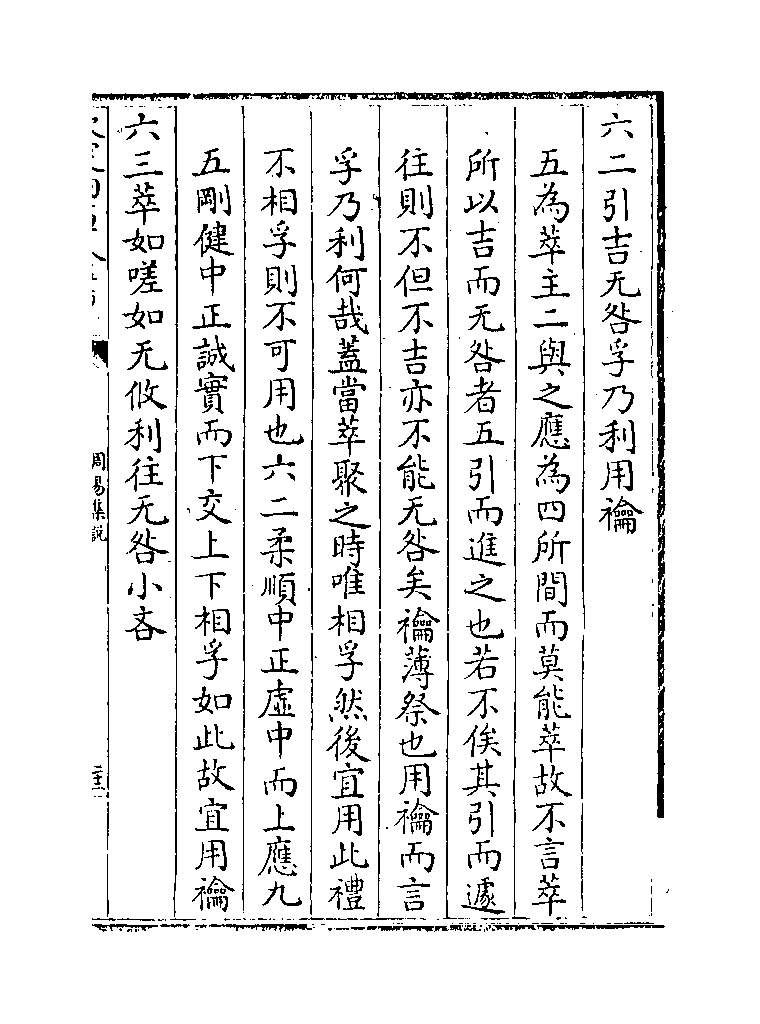 六二引吉无咎孚乃利用禴
五為萃主二與之應為四所間而莫能萃故不言萃
所以吉而无咎者五引而進之也若不俟其引而遽
往則不但不吉亦不能无咎矣禴薄祭也用禴而言
孚乃利何哉蓋當萃聚之時唯相孚然後宜用此禮
不相孚則不可用也六二柔順中正虛中而上應九
五剛健中正誠實而下交上下相孚如此故宜用禴
六三萃如嗟如无攸利往无咎小吝
周易集說